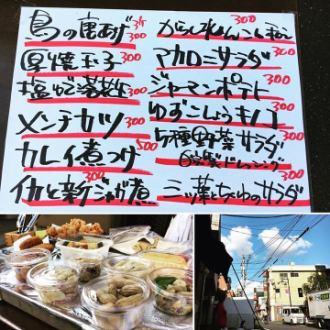 鳥の唐あげ 3ヶ 300
厚焼玉子 300
塩ゆで落花生 300
メンチカツ 300
カレイ煮つけ 500
イカと新じゃが煮 300
からしれんこん 300
マカロニサラダ 300
ジャーマンポテト 300
ゆずこしょうキノコ 300
5種野菜サラダ 300
自家製ドレッシング
三ッ葉とちくわのサラダ 300